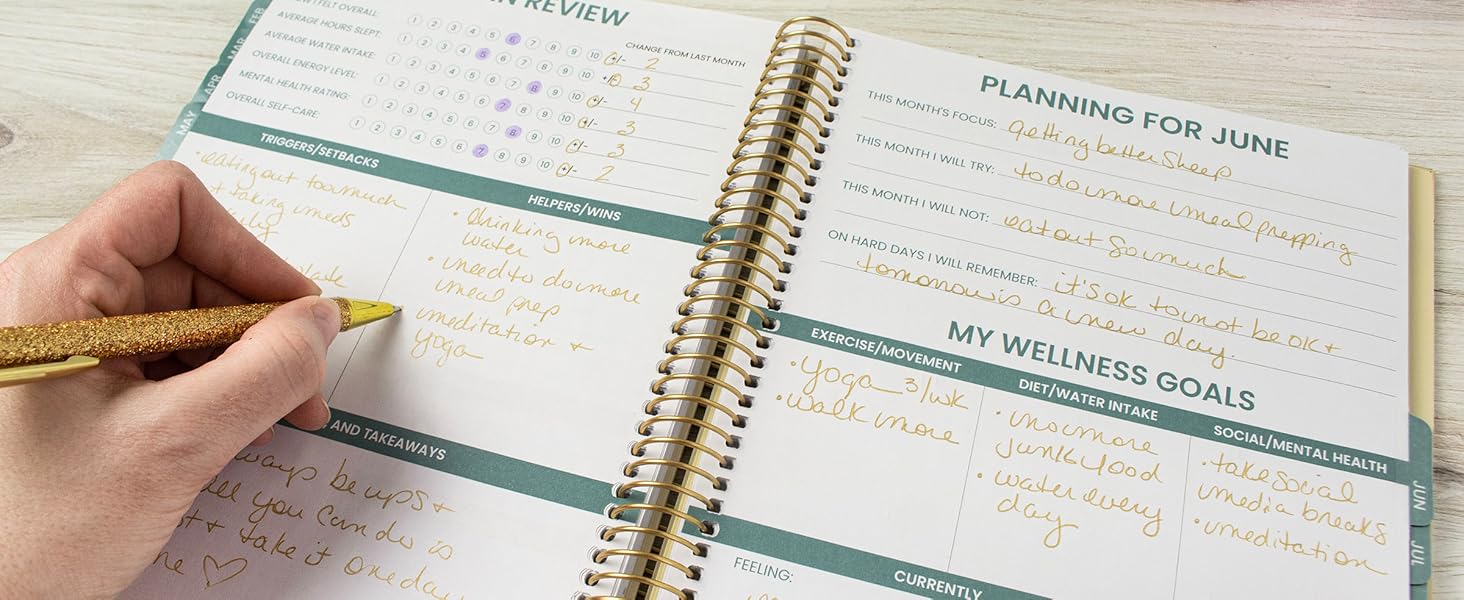 FEB
MAR
APR
MAY
IN REVIEW
FELT OVERALL:
1 2 3 4 5 6 7 8 9 10
CHANGE FROM LAST MONTH
AVERAGE HOURS SLEPT:
1 2 3 4 5 6 7 8 9 10
+/- 2
AVERAGE WATER INTAKE:
1 2 3 4 5 6 7 8 9 10
+/- 3
OVERALL ENERGY LEVEL:
1 2 3 4 5 6 7 8 9 10
+/- 4
MENTAL HEALTH RATING:
1 2 3 4 5 6 7 8 9 10
+/- 3
OVERALL SELF-CARE:
1 2 3 4 5 6 7 8 9 10
+/- 3
+/- 2
TRIGGERS/SETBACKS
• eating out too much
taking meds
HELPERS/WINS
• drinking more
water
• need to do more
meal prep
• meditation +
yoga
AND TAKEAWAYS
ways be ups +
you can do is
+ take it one day
♡
PLANNING FOR JUNE
THIS MONTH'S FOCUS: getting better sleep
THIS MONTH I WILL TRY: to do more meal prepping
THIS MONTH I WILL NOT: eat out so much
ON HARD DAYS I WILL REMEMBER: it's ok to not be ok +
tomorrow is a new day.
MY WELLNESS GOALS
EXERCISE/MOVEMENT
• yoga 3/wk
• walk more
DIET/WATER INTAKE
• no more
junk food
• water every
day
SOCIAL/MENTAL HEALTH
• take social
media breaks
• meditation
CURRENTLY
FEELING:
JUN
JUL